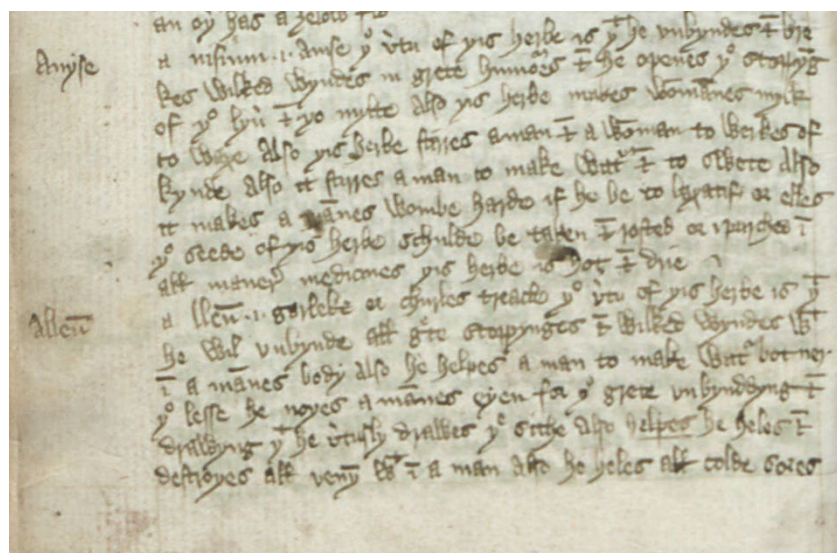 an oy has a ȝelow
Anyse
a nisium .i. Anse yᵉ v̓tu of yis herbe is yᵗ he vnbyndes & bre
kes Wikked Wyndes in grete humoēs & he openes yᵉ stoppyng
of yᵉ lyū & yo mylte Also yis herbe makes Wom̄anes mylk
to Waxe Also yis herbe stirres a man & a Woman to Werkes of
kynde Also it stirres a man to make Watᵗ & to sWete Also
it makes a m̄anes Wombe harde if he be to laxatif or elles
yᵉ seede of yis herbe schulde be taken & rosted or iparched ī
all maner medicines yis herbe is hot & drie
Alleū
a lleū .i. garleke or churles treacle yᵉ v̓tu of yis herbe is yᵗ
he Wil vnbynde all gᵉte stoppynges & Wikked Wyndes Wᵗ
ī a m̄anes body Also he helpes a man to make Watᵗ bot ner
yᵉ lesse he noyes a m̄anes eyen for yᵉ grete vnbyndyng &
draWyng yᵗ he v̓tusly draWes yᵉ sithe Also helpes he heles &
destroyes all venȳ Wᵗ ī a man Also he heles all colde sores